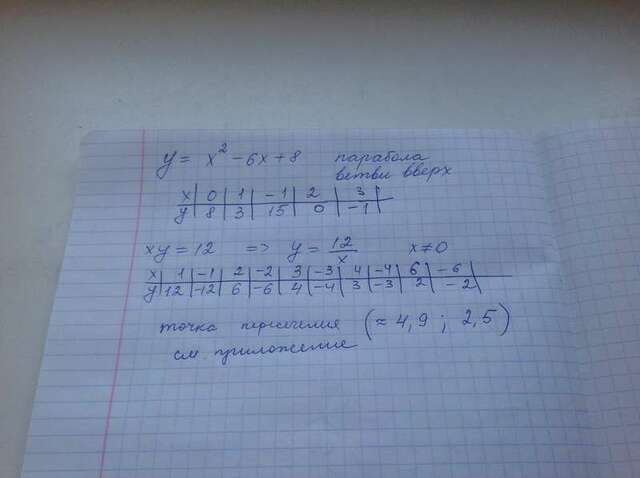 y = x² - 6x + 8 парабола
ветви вверх
x | 0 | 1 | -1 | 2 | 3 |
y | 8 | 3 | 15 | 0 | -1 |
xy = 12 => y = 12/x x ≠ 0
x | 1 | -1 | 2 | -2 | 3 | -3 | 4 | -4 | 6 | -6 |
y | 12 | -12 | 6 | -6 | 4 | -4 | 3 | -3 | 2 | -2 |
точка пересечения (≈ 4,9 ; 2,5)
см. приложение